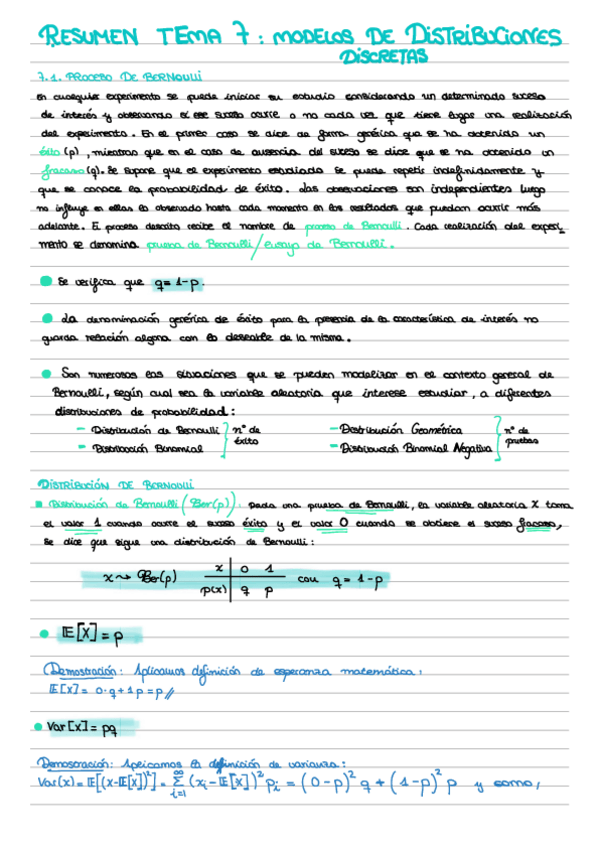 RESUMEN TEMA 7: MODELOS DE DISTRIBUCIONES
DISCRETAS
7.1. PROCESO DE BERNOULLI
En cualquier experimento se puede iniciar su estudio considerando un determinado suceso
de interés y observando si ese suceso ocurre o no cada vez que tiene lugar una realización
del experimento. En el primer caso se dice de forma genérica que se ha obtenido un
éxito (p), mientras que en el caso de ausencia del suceso se dice que se ha obtenido un
fracaso (q). Se supone que el experimento estudiado se puede repetir indefinidamente y
que se conoce la probabilidad de éxito. Las observaciones son independientes luego
no influye en ellas lo observado hasta cada momento en los resultados que puedan ocurrir más
adelante. El proceso descrito recibe el nombre de proceso de Bernoulli. Cada realización del experi-
mento se denomina prueba de Bernoulli/ensayo de Bernoulli.
• Se verifica que q=1-p.
• La denominación genérica de éxito para la presencia de la característica de interés no
guarda relación alguna con lo deseable de la misma.
• Son numerosas las situaciones que se pueden modelizar en el contexto general de
Bernoulli, según cual sea la variable aleatoria que interese estudiar, a diferentes
distribuciones de probabilidad:
- Distribución de Bernoulli } nº de - Distribución Geométrica } nº de
- Distribución Binomial } éxito - Distribución Binomial Negativa } pruebas
DISTRIBUCIÓN DE BERNOULLI
Distribución de Bernoulli (Ber(p)): Dada una prueba de Bernoulli, la variable aleatoria X toma
el valor 1 cuando ocurre el suceso éxito y el valor 0 cuando se obtiene el suceso fracaso,
se dice que sigue una distribución de Bernoulli:
x 0 1
x ⤳ Ber(p) con q = 1-p
p(x) q p
• 𝔼[X] = p
Demostración: Aplicamos definición de esperanza matemática:
𝔼[x] = 0·q + 1p = p //
• Var[x] = pq
Demostración: Aplicamos la definición de varianza:
Var(x) = 𝔼[(x-𝔼[x])²] = ∑_{i=1}^{∞} (xᵢ - 𝔼[x])² pᵢ = (0-p)² q + (1-p)² p y como,